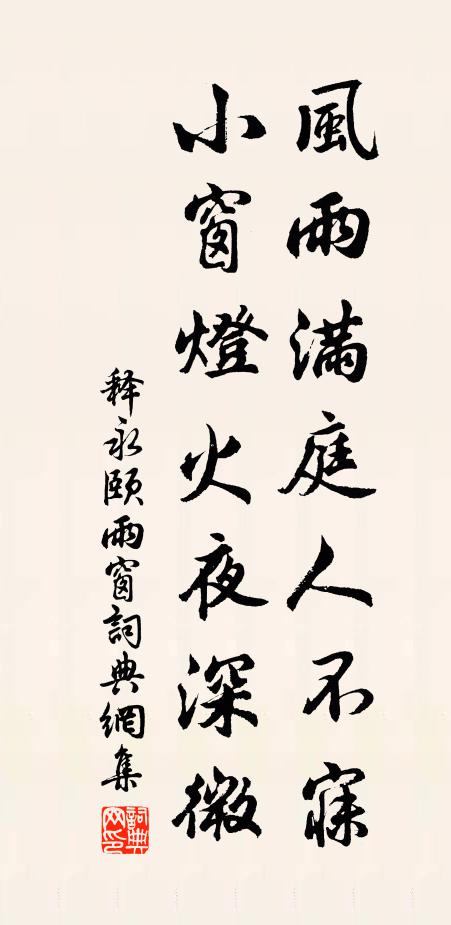 風雨滿庭人不寐
小窗燈火夜深微
释永頤雨窗詞典網集
詞典网印